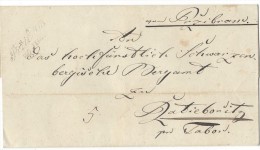 von Przibram
An
Das hochfürstlich Schwarzen-
bergische Bergamt
zu
Ratieboritz
per Tabor.